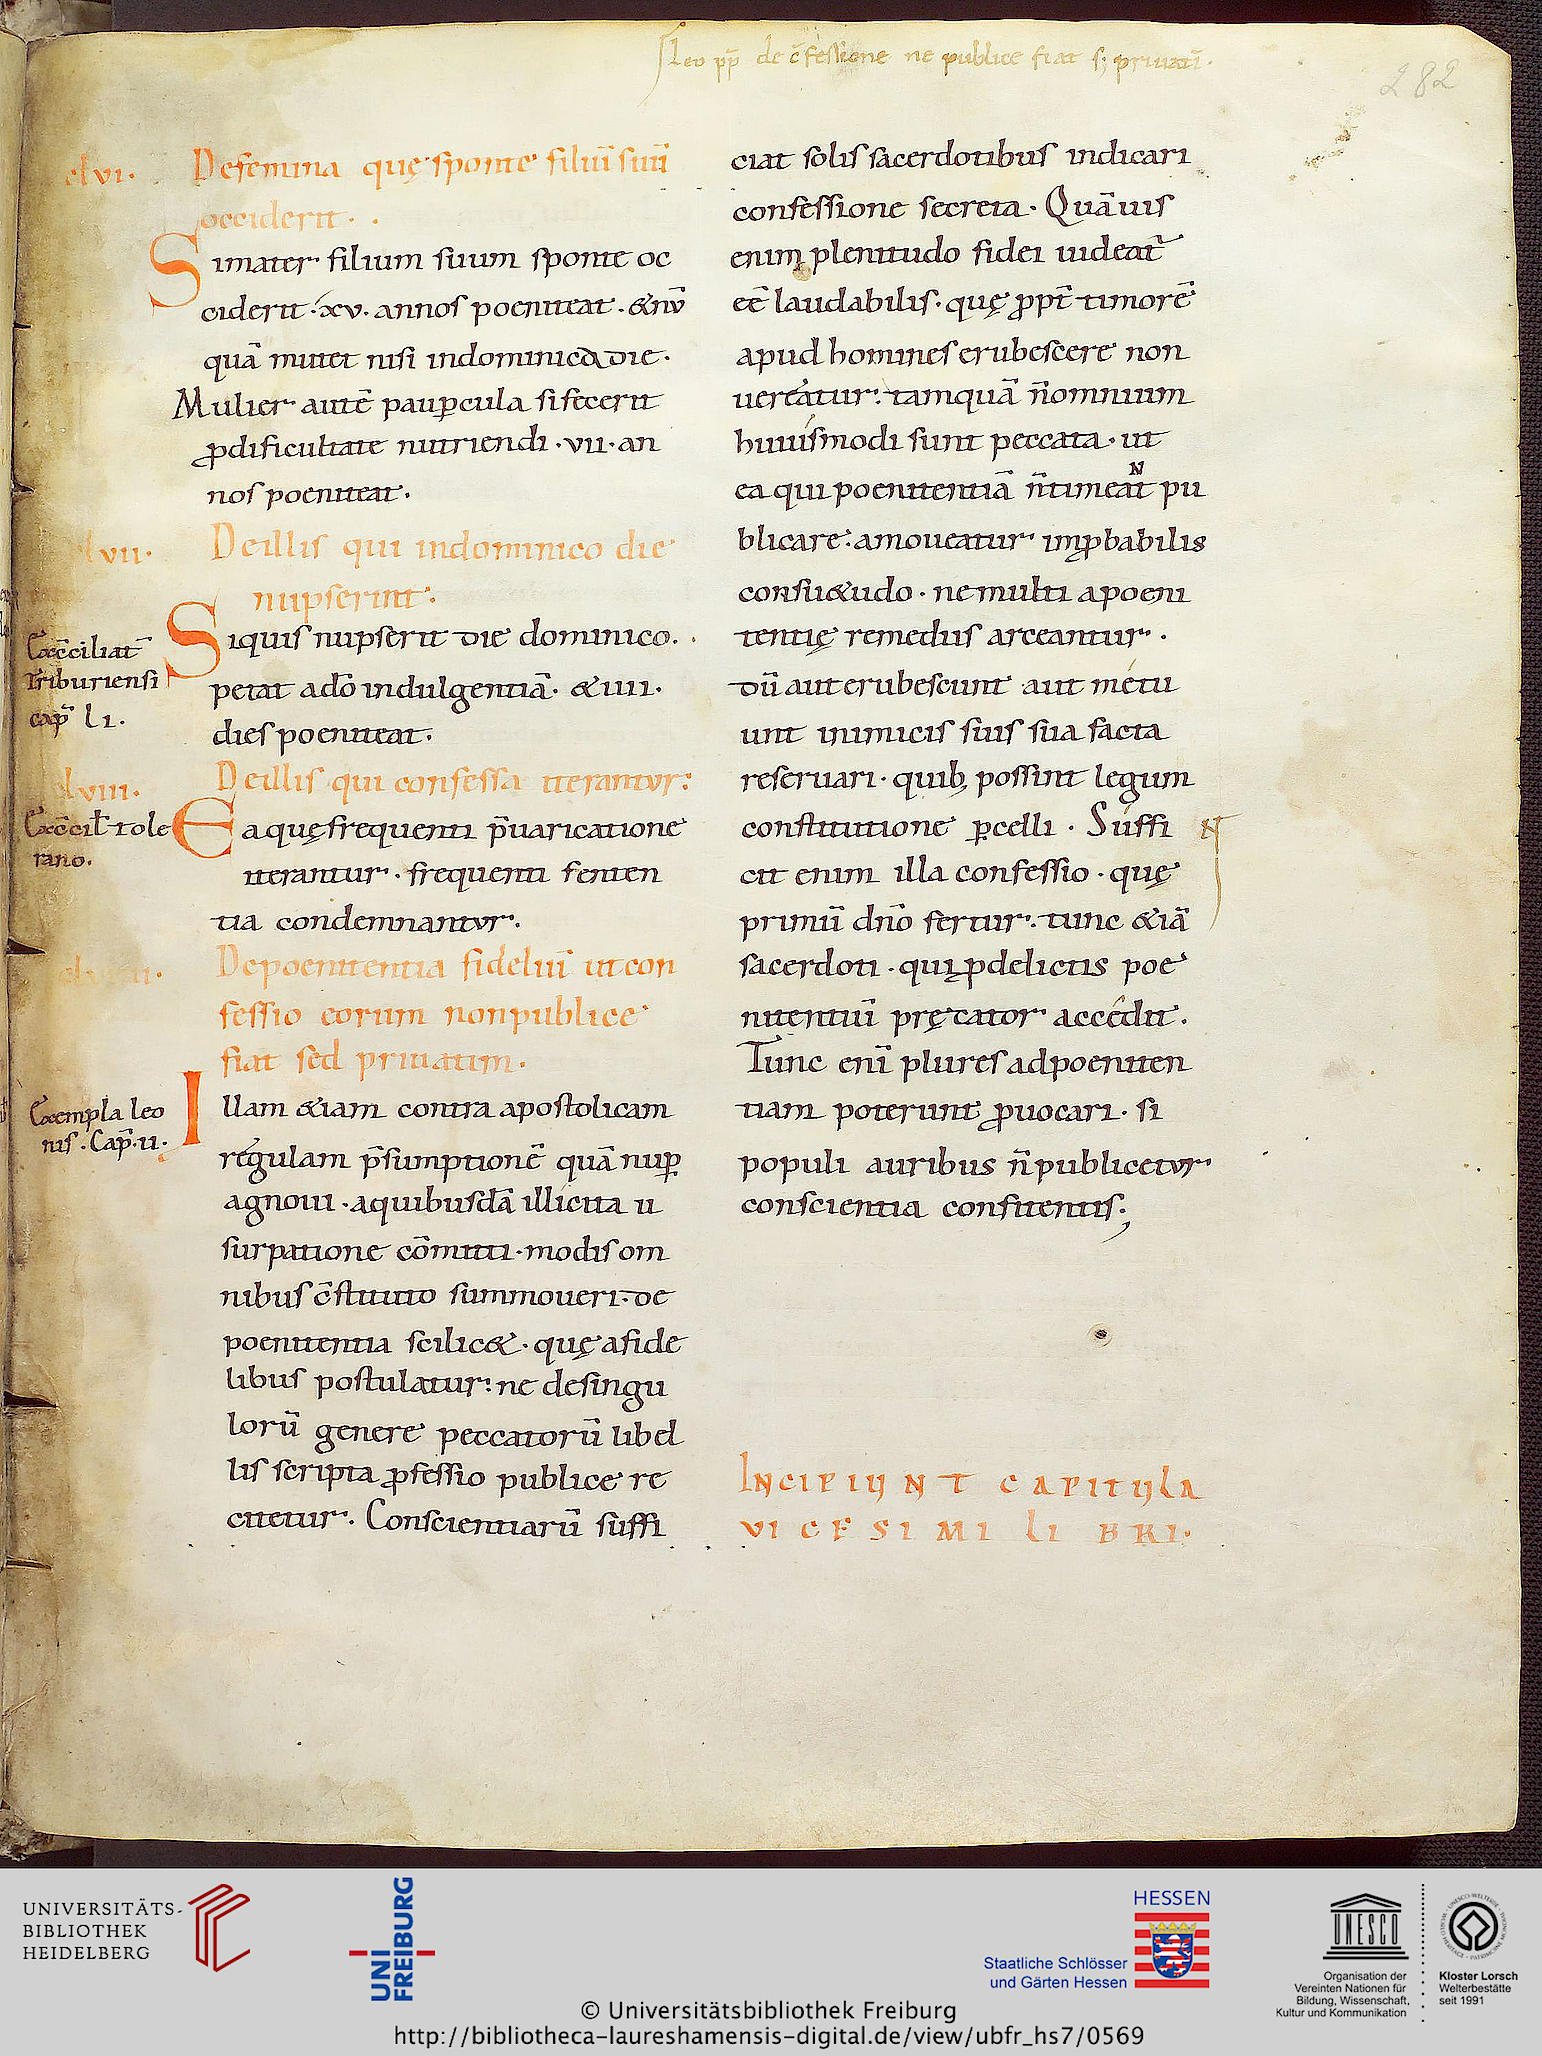 Leo pp̄ de c̄fessione ne publice fiat s; priuatī·
282
clvi·
De femina quę sponte filiū suū
occiderit·
Si mater filium suum sponte oc
ciderit·xv· annos poeniteat·&nū
quā mutet nisi indominica die·
Mulier autē paupcula si fecerit
ꝓdificultate nutriendi·vii·an
nos poeniteat·
clvii·
De illis qui indominico die
nupserint·
Ex c̄ciliaT̄
Triburiensi
cap̄ li·
Siquis nupserit die dominico·
petat ad̄o indulgentiā· &iiii·
dies poeniteat·
clviii·
De illis qui confessa iterantur:
Ex c̄cil̄ tole
tano·
Ea quę frequenti p̄uaricatione
iterantur· frequenti senten
tia condemnantur·
De poenitentia fideliū ut con
fessio eorum non publice
fiat sed priuatim·
Ex exempla leo
nis·Cap̄·ii·
Illam &iam contra apostolicam
regulam p̄sumptionē quā nup̱
agnoui·aquibusdā illicita u
surpatione cōmitti·modis om
nibus c̄stituto summoueri·de
poenitentia scilic&·quę afide
libus postulatur: ne desingu
lorū genere peccatorū libel
lis scripta ꝓfessio publice re
citetur· Conscientiarū suffi
ciat solis sacerdotibus indicari
confessione secreta· Quāuis
enim plenitudo fidei uideat̄
eē laudabilis·quę ꝓpt̄ timorē
apud homines erubescere non
uereatur: tamquā n̄omnium
huiusmodi sunt peccata·ut
ea qui poenitentiā n̄timeaNt pu
blicare: amoueatur imꝓbabilis
consu&udo·ne multi apoeni
tentię remediis arceantur·
dū aut erubescunt aut metu
unt inimicis suis sua facta
reseruari·quib; possint legum
constitutione ꝑcelli· Suffi
cit enim illa confessio·quę
primū dn̄o fertur· tunc &iā
sacerdoti·qui ꝓdelictis poe
nitentiū pręcator accedit·
Tunc enī plures adpoeniten
tiam poterunt ꝓuocari·si
populi auribus n̄publicetur
conscientia confitentis;
INCIPIUNT CAPITULA
VICESIMI LIBRI·
UNIVERSITÄTS-
BIBLIOTHEK
HEIDELBERG
UNI
FREIBURG
HESSEN
Staatliche Schlösser
und Gärten Hessen
UNESCO
Organisation der
Vereinten Nationen für
Bildung, Wissenschaft,
Kultur und Kommunikation
Kloster Lorsch
Welterbestätte
seit 1991
© Universitätsbibliothek Freiburg
http://bibliotheca-laureshamensis-digital.de/view/ubfr_hs7/0569